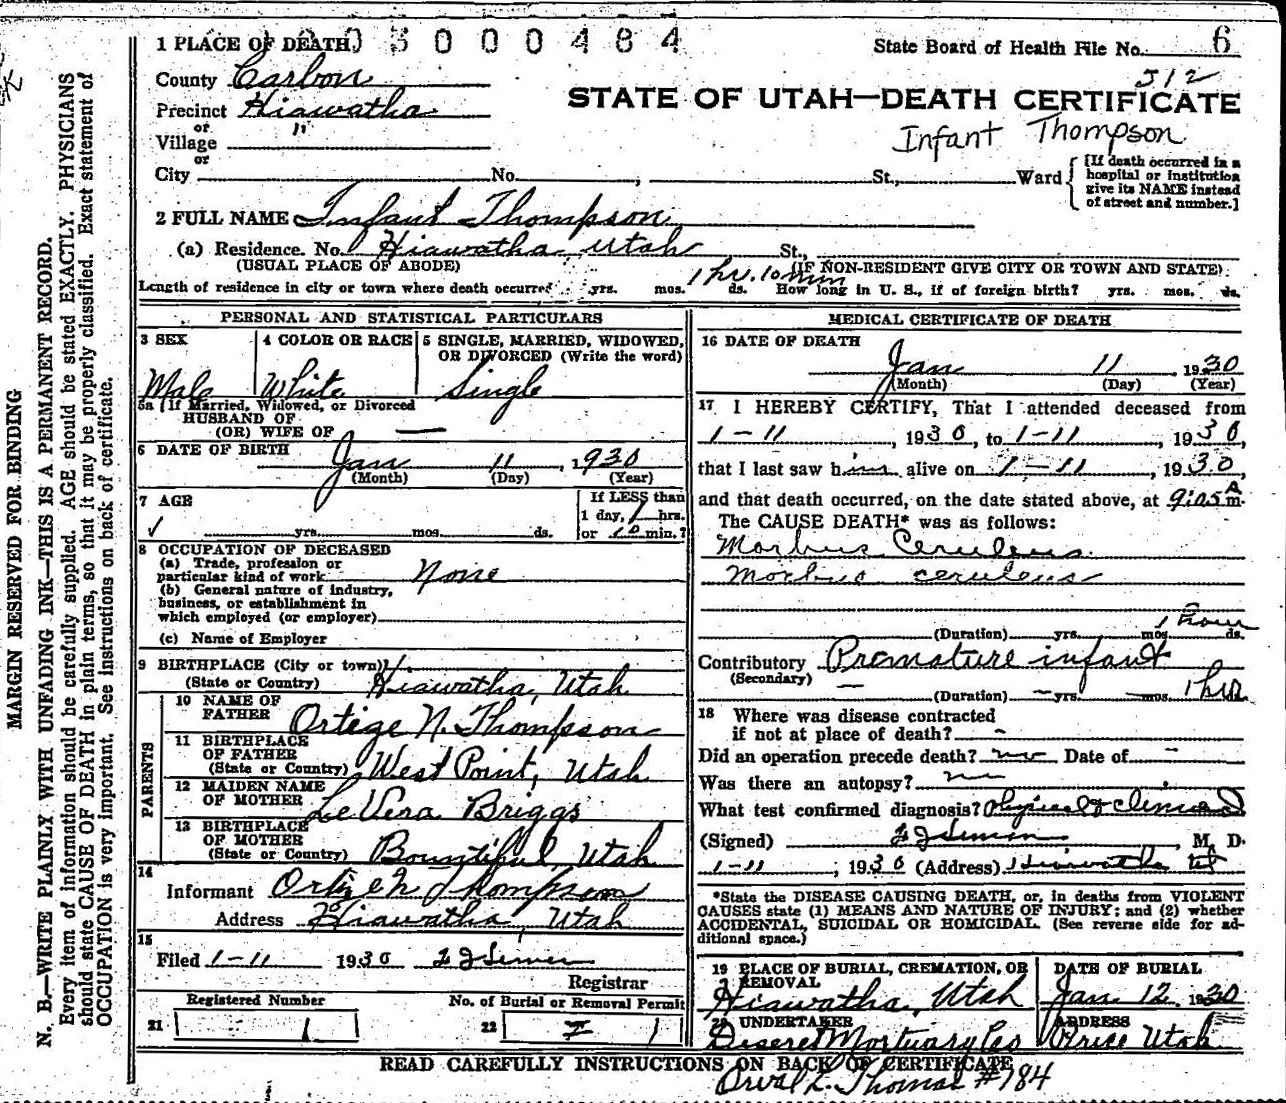 0 3 0 0 0 4 8 4
1 PLACE OF DEATH
State Board of Health File No. 6
County Carbon
512
STATE OF UTAH—DEATH CERTIFICATE
Precinct Hiawatha
or
Village "
Infant Thompson
or
City No. , St., Ward
[If death occurred in a
hospital or institution
give its NAME instead
of street and number.]
2 FULL NAME Infant Thompson
(a) Residence. No. Hiawatha, Utah St.,
(USUAL PLACE OF ABODE) (IF NON-RESIDENT GIVE CITY OR TOWN AND STATE)
1 hr. 10 min
Length of residence in city or town where death occurred yrs. mos. ds. How long in U. S., if of foreign birth? yrs. mos. ds.
PERSONAL AND STATISTICAL PARTICULARS
3 SEX
Male
4 COLOR OR RACE
White
5 SINGLE, MARRIED, WIDOWED,
OR DIVORCED (Write the word)
Single
5a (If Married, Widowed, or Divorced
HUSBAND OF
(OR) WIFE OF —
6 DATE OF BIRTH
Jan 11, 1930
(Month) (Day) (Year)
7 AGE
yrs. mos. ds.
If LESS than
1 day, 1 hrs.
or 10 min.?
8 OCCUPATION OF DECEASED
(a) Trade, profession or
particular kind of work None
(b) General nature of industry,
business, or establishment in
which employed (or employer)
(c) Name of Employer
9 BIRTHPLACE (City or town)
(State or Country) Hiawatha, Utah
PARENTS
10 NAME OF
FATHER Ortige N. Thompson
11 BIRTHPLACE
OF FATHER
(State or Country) West Point, Utah
12 MAIDEN NAME
OF MOTHER LeVera Briggs
13 BIRTHPLACE
OF MOTHER
(State or Country) Bountiful, Utah
14
Informant Ortige N Thompson
Address Hiawatha, Utah
15
Filed 1-11 1930
Registrar
Registered Number
21 1
No. of Burial or Removal Permit
22 1
MEDICAL CERTIFICATE OF DEATH
16 DATE OF DEATH
Jan 11 1930
(Month) (Day) (Year)
17 I HEREBY CERTIFY, That I attended deceased from
1-11, 1930, to 1-11, 1930,
that I last saw him alive on 1-11, 1930,
and that death occurred, on the date stated above, at 9:05 A m.
The CAUSE DEATH* was as follows:
Morbus Ceruleus
Morbus ceruleus
1 hour
(Duration) yrs. mos. ds.
Contributory Premature infant
(Secondary) —
(Duration) — yrs. — mos. 1 hr
18 Where was disease contracted
if not at place of death? -
Did an operation precede death? no Date of -
Was there an autopsy? no
What test confirmed diagnosis? Physical & clinical
(Signed) , M. D.
1-11, 1930 (Address) Hiawatha Ut
*State the DISEASE CAUSING DEATH, or, in deaths from VIOLENT
CAUSES state (1) MEANS AND NATURE OF INJURY; and (2) whether
ACCIDENTAL, SUICIDAL OR HOMICIDAL. (See reverse side for ad-
ditional space.)
19 PLACE OF BURIAL, CREMATION, OR
REMOVAL
Hiawatha, Utah
DATE OF BURIAL
Jan 12, 1930
20 UNDERTAKER
Deseret Mortuary Co
ADDRESS
Price Utah
READ CAREFULLY INSTRUCTIONS ON BACK OF CERTIFICATE
Orval L. Thomas #184
MARGIN RESERVED FOR BINDING
N. B.—WRITE PLAINLY, WITH UNFADING INK—THIS IS A PERMANENT RECORD.
Every item of information should be carefully supplied. AGE should be stated EXACTLY. PHYSICIANS
should state CAUSE OF DEATH in plain terms, so that it may be properly classified. Exact statement of
OCCUPATION is very important. See instructions on back of certificate.